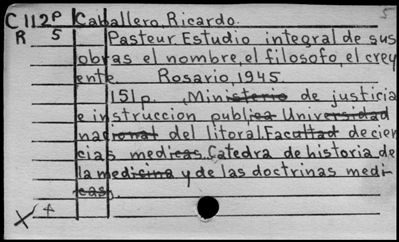 5
C112p Caballero, Ricardo.
R 5 Pasteur. Estudio integral de sus
obras el nombre, el filosofo, el crey
ente. Rosario, 1945.
151 p. (Ministerio de justicia
e instruccion publica Universidad
nacional del litoral. Facultad de cien
cias medicas. Catedra de historia de
la medicina y de las doctrinas medi
cas).
X +